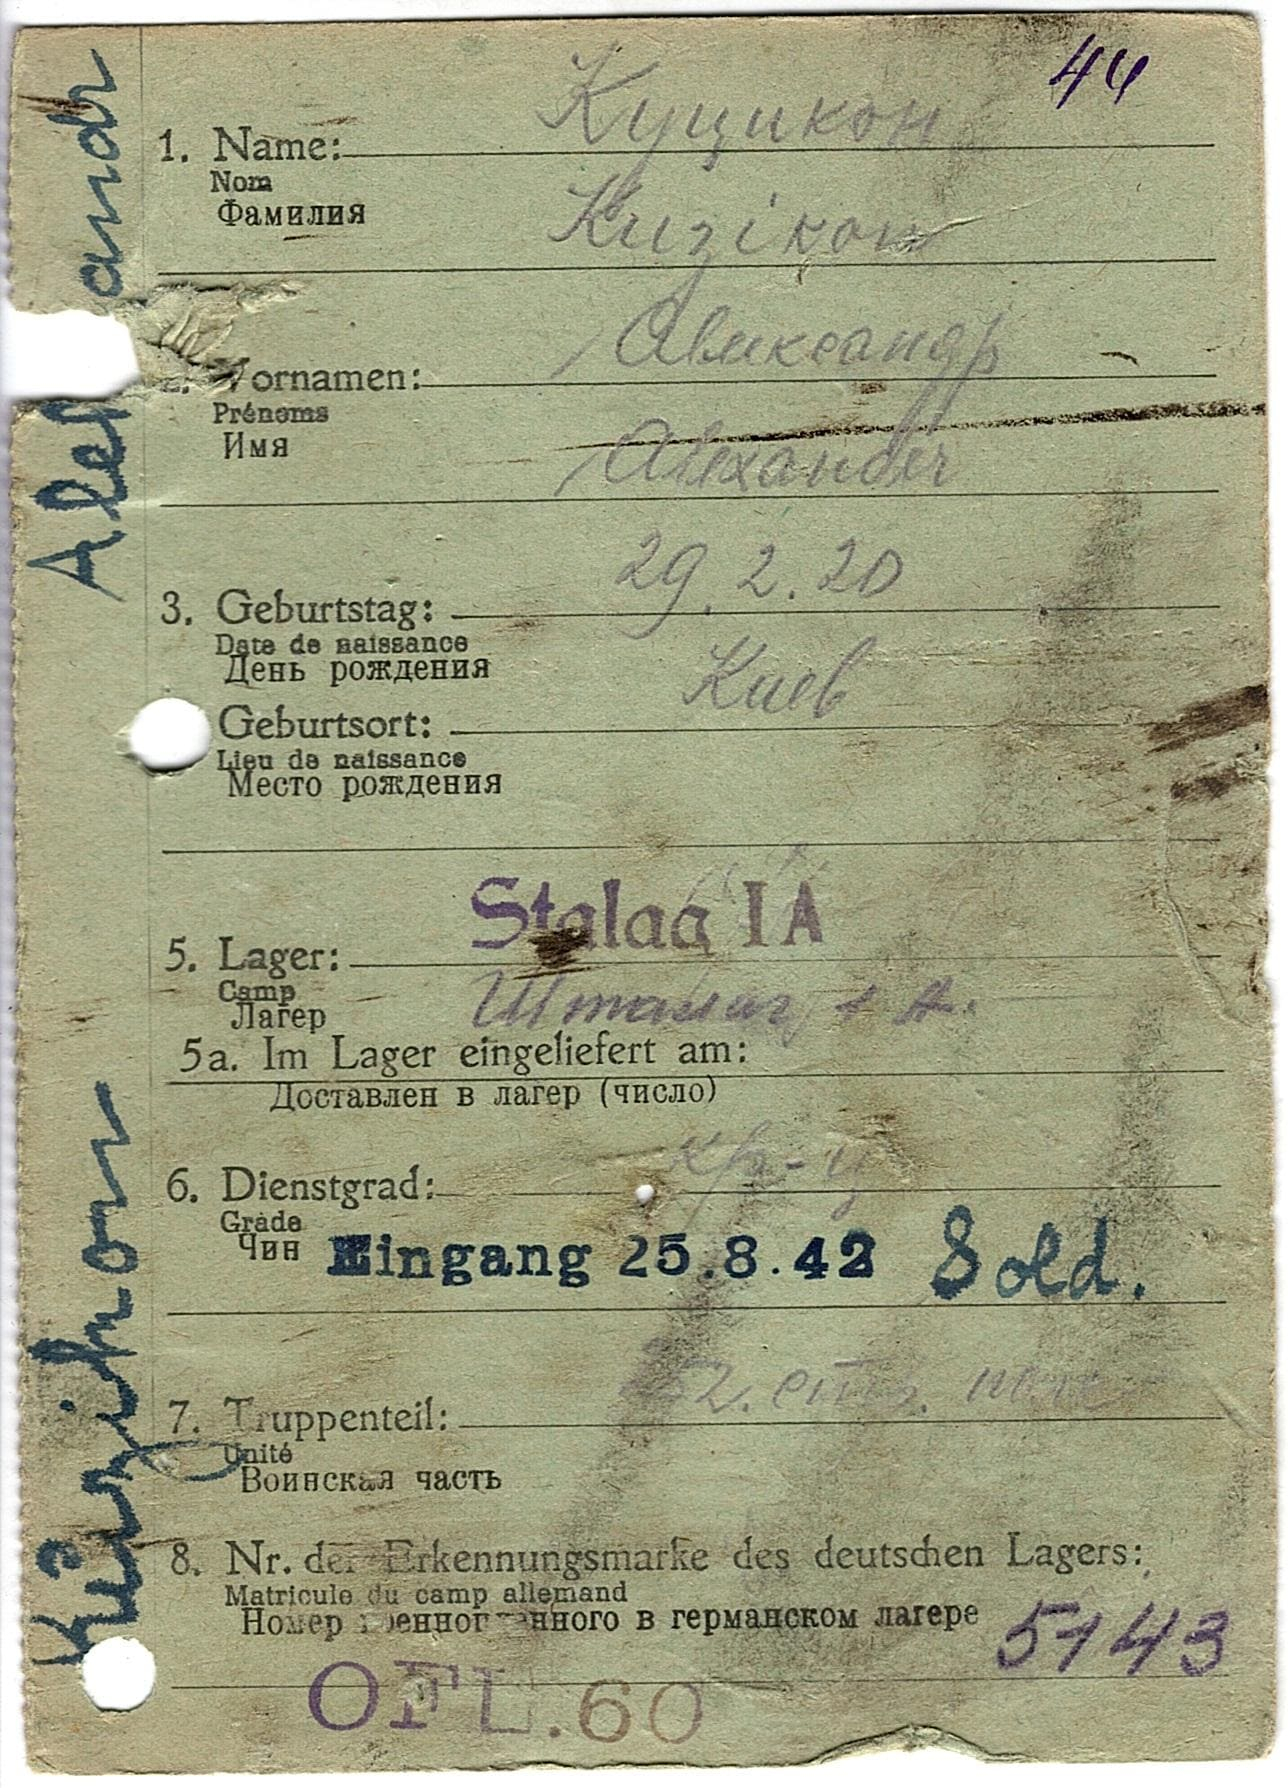 44
1. Name: Куцикон
Nom
Фамилия
Kuzikon
2. Vornamen: Александр
Prénoms
Имя
Alexander
3. Geburtstag: 29.2.20
Date de naissance
День рождения
Киев
Geburtsort:
Lieu de naissance
Место рождения
Stalag IA
5. Lager:
Camp
Лагер
Шталаг 1 А.
5a. Im Lager eingeliefert am:
Доставлен в лагер (число)
6. Dienstgrad: кр-ц
Grade
Чин
Eingang 25.8.42 Sold.
7. Truppenteil:
Unité
Воинская часть
8. Nr. der Erkennungsmarke des deutschen Lagers:
Matricule du camp allemand
Номер военнопленного в германском лагере
5143
OFL.60
Kuzikon Alexandr